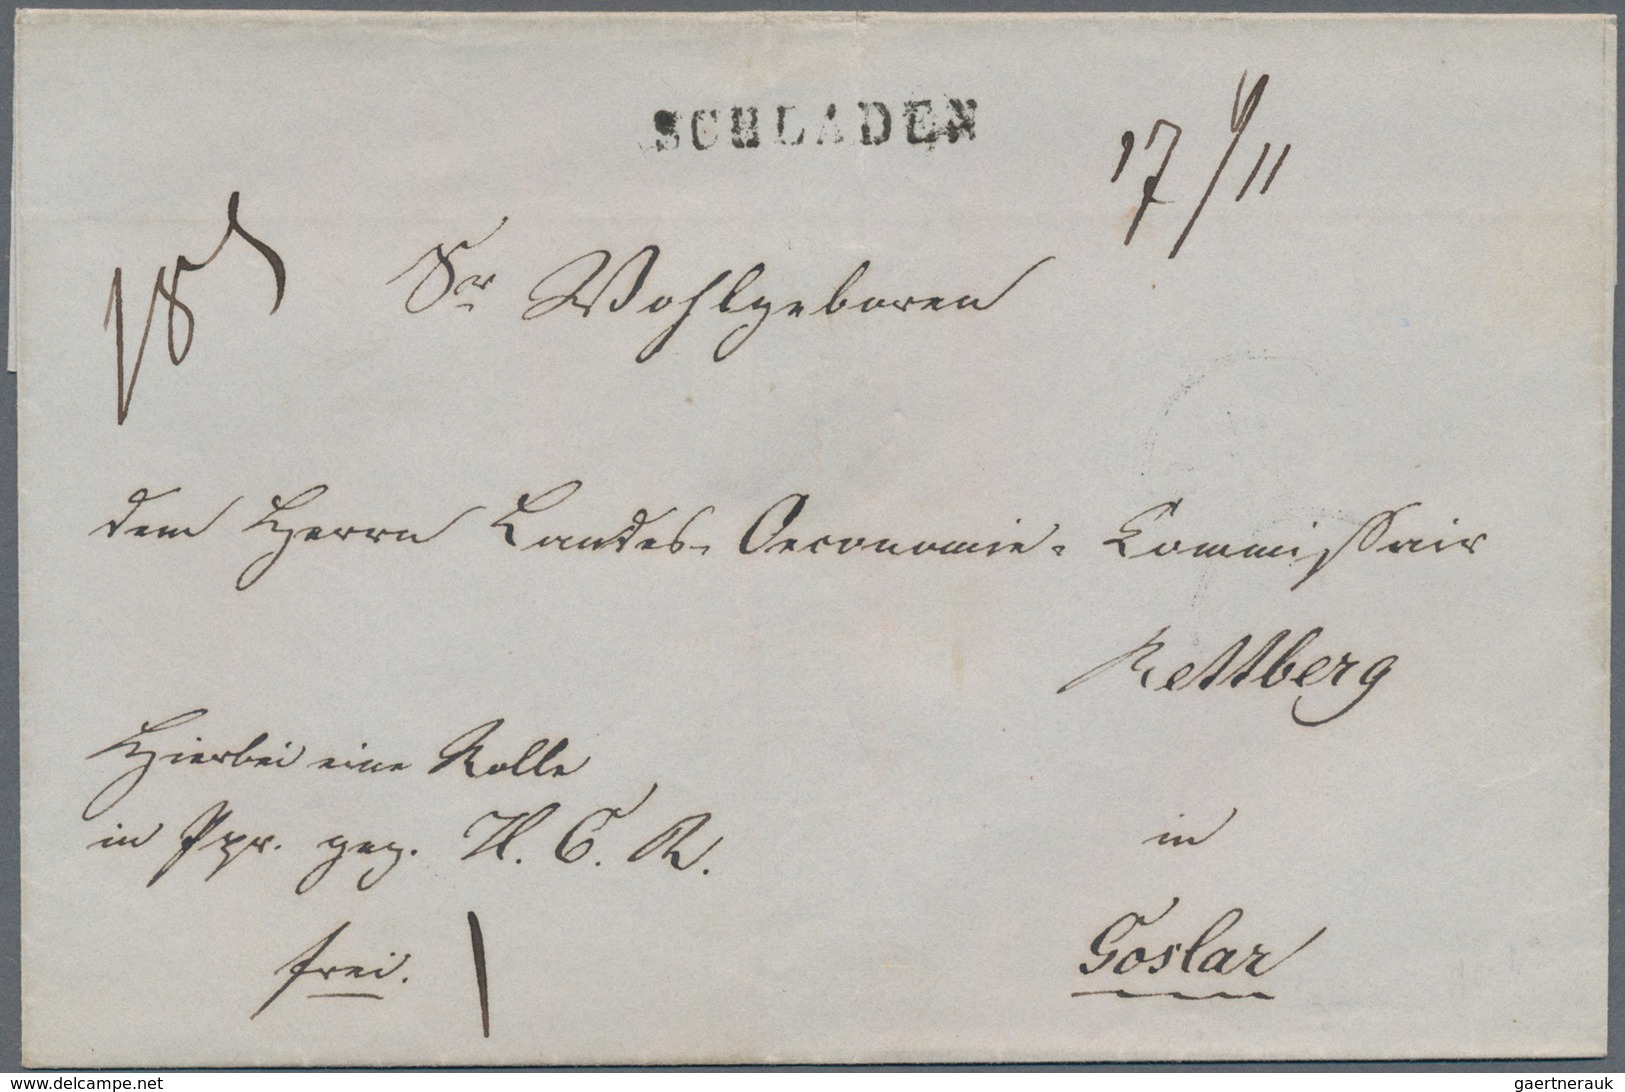 SCHLADEN
17/11
Sr Wohlgeboren
dem Herrn Landes-Oeconomie-Commissair
Rettberg
Hierbei eine Rolle
in Ppr. gez. H. C. R.
in
frei.
Goslar
www.delcampe.net
gaertnerauk